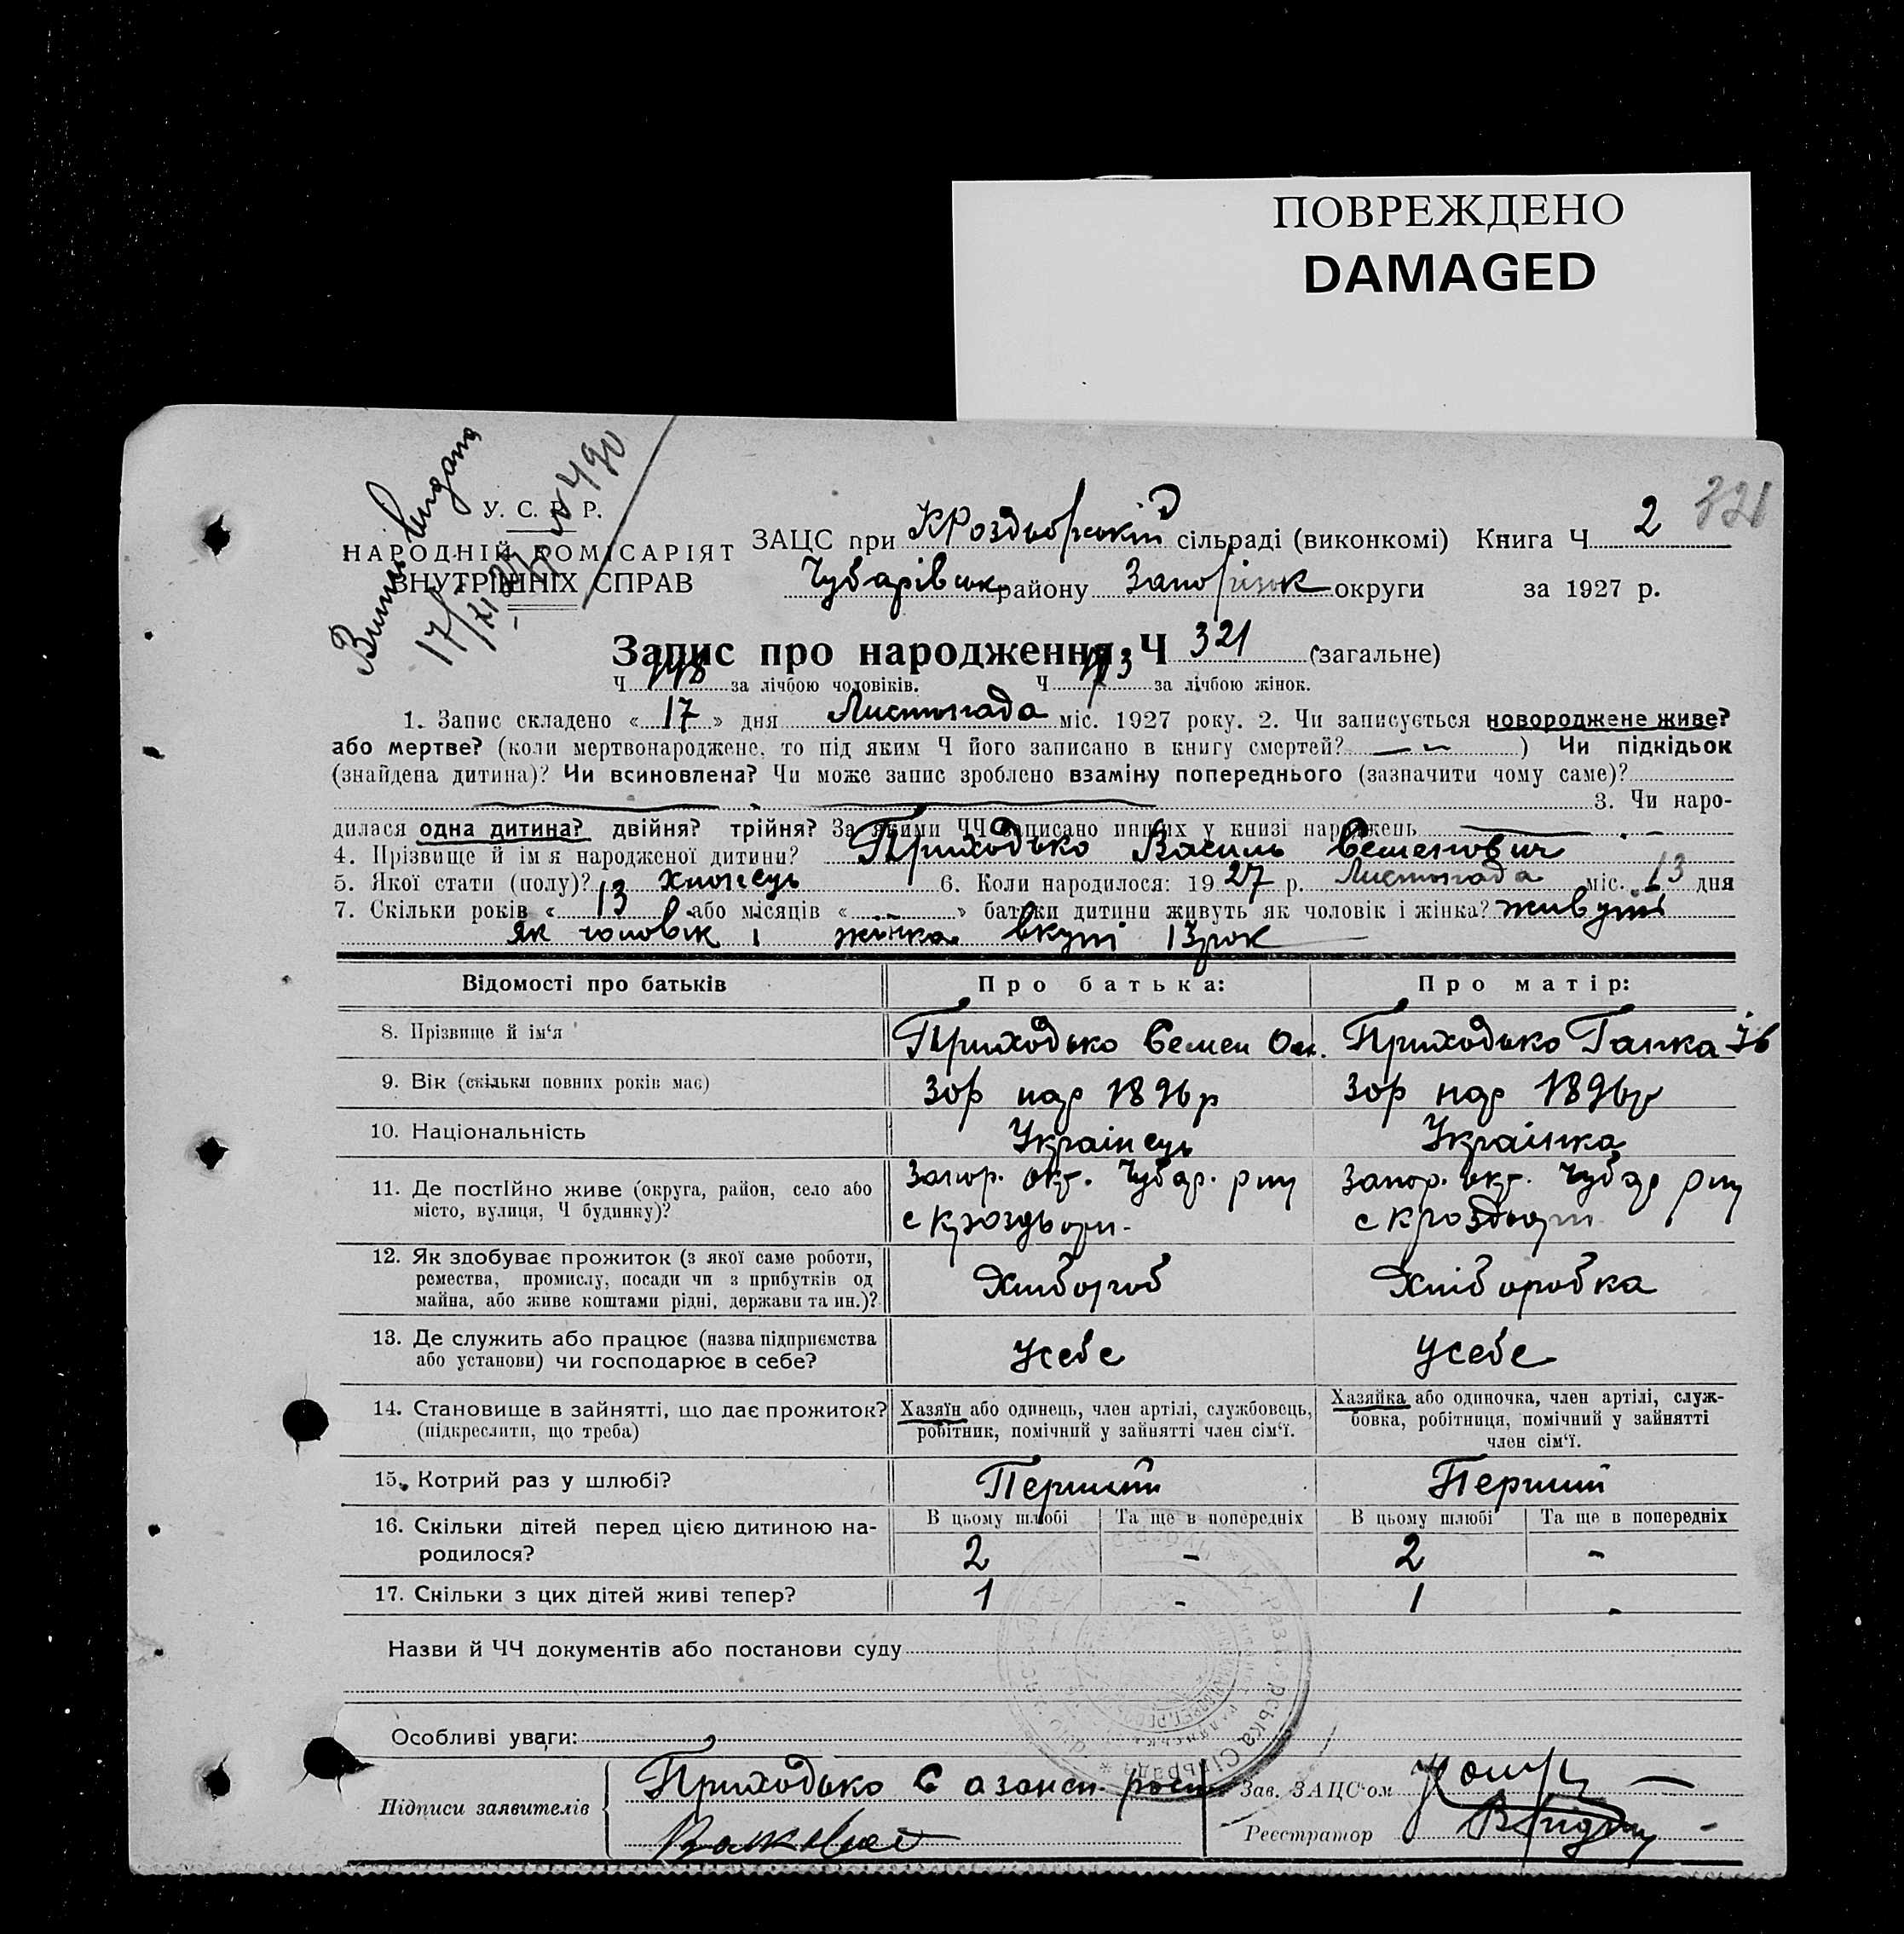 ПОВРЕЖДЕНО
DAMAGED
321
У. С. Р. Р.
НАРОДНІЙ КОМІСАРІЯТ
ВНУТРІШНІХ СПРАВ
ЗАЦС при КРоздорській сільраді (виконкомі) Книга Ч 2
Чубарівськ району Запоріжок округи за 1927 р.
Запис про народження Ч 321 (загальне)
Ч 148 за лічбою чоловіків. Ч 173 за лічбою жінок.
1. Запис складено « 17 » дня Листопада міс. 1927 року. 2. Чи записується новороджене живе?
або мертве? (коли мертвонароджене, то під яким Ч його записано в книгу смертей? — ) Чи підкідьок
(знайдена дитина)? Чи всиновлена? Чи може запис зроблено взаміну попереднього (зазначити чому саме)?
3. Чи наро-
дилася одна дитина? двійня? трійня? За якими ЧЧ записано инших у книзі народжень —
4. Прізвище й ім'я народженої дитини? Приходько Василь Семенович
5. Якої стати (полу)? хлопець 6. Коли народилося: 1927 р. Листопада міс. 13 дня
7. Скільки років « 13 або місяців « - » батьки дитини живуть як чоловік і жінка? живуть
як чоловік і жінка вкупі 13 рок
Відомості про батьків Про батька: Про матір:
8. Прізвище й ім'я Приходько Семен Приходько Ганка Ів
9. Вік (скільки повних років має) 30р нар 1896р 30р нар 1896р
10. Національність Українець Українка
11. Де постійно живе (округа, район, село або Запор. окр. Чубар. рну Запор. окр. Чубар рну
місто, вулиця, Ч будинку)? с Кроздори с Кроздори
12. Як здобуває прожиток (з якої саме роботи,
ремества, промислу, посади чи з прибутків од Хлібороб Хліборобка
майна, або живе коштами рідні, держави та ин.)?
13. Де служить або працює (назва підприємства
або установи) чи господарює в себе? Усебе Усебе
14. Становище в зайнятті, що дає прожиток? Хазяїн або одинець, член артілі, службовець, Хазяйка або одиночка, член артілі, служ-
(підкреслити, що треба) робітник, помічний у зайнятті член сім'ї. бовка, робітниця, помічний у зайнятті
член сім'ї.
15. Котрий раз у шлюбі? Перший Перший
16. Скільки дітей перед цією дитиною на- В цьому шлюбі Та ще в попередніх В цьому шлюбі Та ще в попередніх
родилося? 2 - 2 -
17. Скільки з цих дітей живі тепер? 1 - 1 -
Назви й ЧЧ документів або постанови суду
Особливі уваги:
Підписи заявителів Приходько С Зав. ЗАЦС'ом
Реєстратор